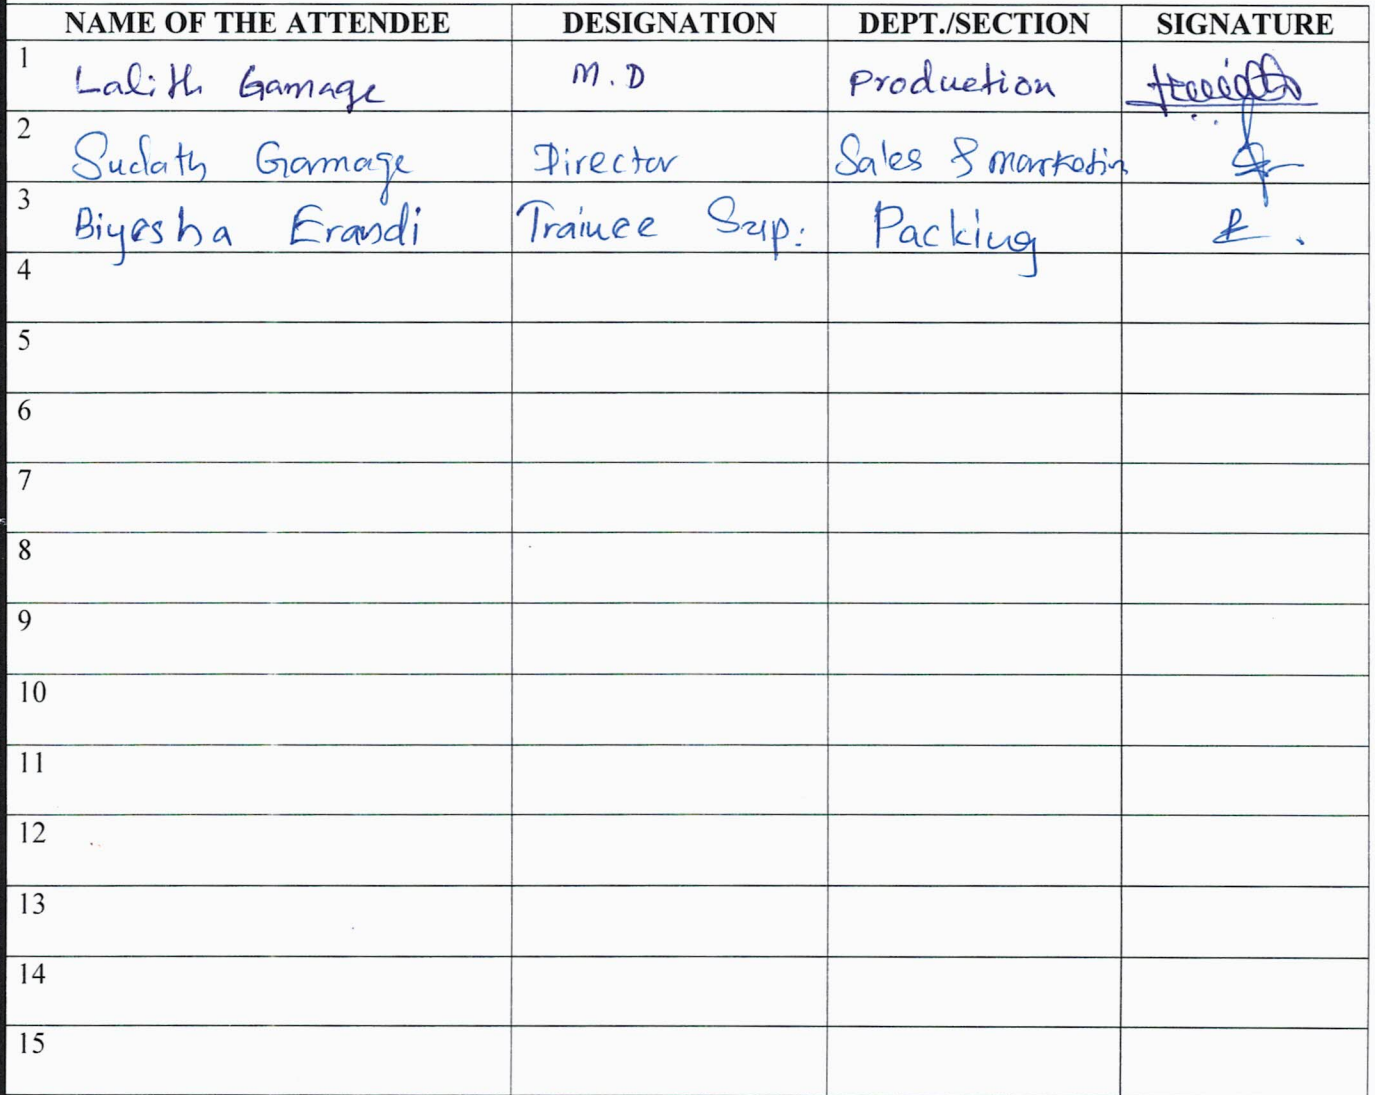 NAME OF THE ATTENDEE DESIGNATION DEPT./SECTION SIGNATURE
1 Lalith Gamage M.D Production
2 Sudath Gamage Director Sales & marketin
3 Biyesha Erandi Trainee Sup: Packing
4
5
6
7
8
9
10
11
12
13
14
15